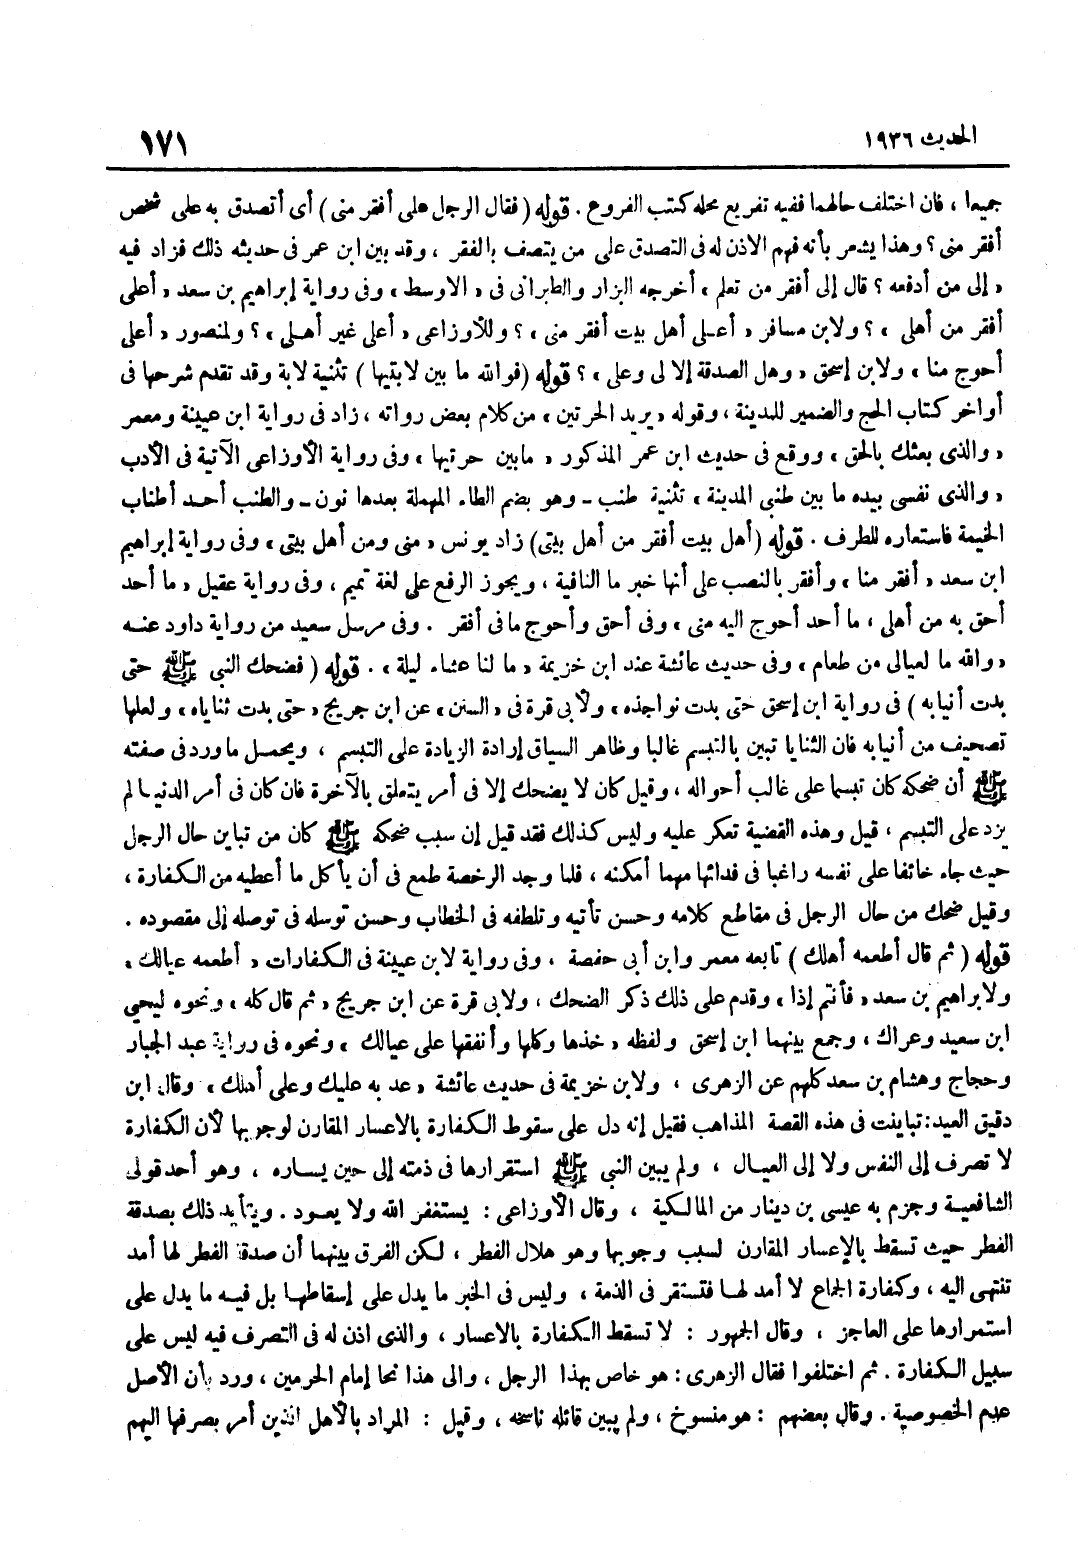 الحديث ١٩٣٦
١٧١
جميعا ، فان اختلف حالهما ففيه تفريع محله كتب الفروع . قوله ( فقال الرجل على أفقر منى ) أى أتصدق به على شخص
أفقر منى ؟ وهذا يشعر بأنه فهم الاذن له فى التصدق على من يتصف بالفقر ، وقد بين ابن عمر فى حديثه ذلك فزاد فيه
« إلى من أدفعه ؟ قال إلى أفقر من تعلم » أخرجه البزار والطبرانى فى « الاوسط » وفى رواية إبراهيم بن سعد « أعلى
أفقر من أهلى » ؟ ولابن مسافر « أعلى أهل بيت أفقر منى » ؟ وللأوزاعى « أعلى غير أهلى » ؟ ولمنصور « أعلى
أحوج منا » ولابن إسحق « وهل الصدقة إلا لى وعلى » ؟ قوله ( فوالله ما بين لابتيها ) تثنية لابة وقد تقدم شرحها فى
أواخر كتاب الحج والضمير للمدينة ، وقوله « يريد الحرتين » من كلام بعض رواته ، زاد فى رواية ابن عيينة ومعمر
« والذى بعثك بالحق » ووقع فى حديث ابن عمر المذكور « ما بين حرتيها » وفى رواية الأوزاعى الآتية فى الأدب
« والذى نفسى بيده ما بين طنبى المدينة » تثنية طنب ــ وهو بضم الطاء المهملة بعدها نون ــ والطنب أحد أطناب
الخيمة فاستعاره للطرف . قوله ( أهل بيت أفقر من أهل بيتى ) زاد يونس « منى ومن أهل بيتى » وفى رواية إبراهيم
ابن سعد « أفقر منا » وأفقر بالنصب على أنها خبر ما النافية ، ويجوز الرفع على لغة تميم ، وفى رواية عقيل « ما أحد
أحق به من أهلى ، ما أحد أحوج اليه منى » وفى أحق وأحوج ما فى أفقر . وفى مرسل سعيد من رواية داود عنه
« والله ما لعيالى من طعام » وفى حديث عائشة عند ابن خزيمة « ما لنا عشاء ليلة » . قوله ( فضحك النبي ﷺ حتى
بدت أنيابه ) فى رواية ابن إسحق حتى بدت نواجذه » ولأبى قرة فى « السنن » عن ابن جريج « حتى بدت ثناياه » ولعلها
تصحيف من أنيابه فان الثنايا تبين بالتبسم غالبا وظاهر السياق إرادة الزيادة على التبسم ، ويحمل ما ورد فى صفته
ﷺ أن ضحكه كان تبسما على غالب أحواله ، وقيل كان لا يضحك إلا فى أمر يتعلق بالآخرة فان كان فى أمر الدنيا لم
يزد على التبسم ، قيل وهذه القضية تعكر عليه وليس كذلك فقد قيل إن سبب ضحكه ﷺ كان من تباين حال الرجل
حيث جاء خائفا على نفسه راغبا فى فدائها مهما أمكنه ، فلما وجد الرخصة طمع فى أن يأكل ما أعطيه من الكفارة ،
وقيل ضحك من حال الرجل فى مقاطع كلامه وحسن تأتيه وتلطفه فى الخطاب وحسن توسله فى توصله إلى مقصوده .
قوله ( ثم قال أطعمه أهلك ) تابعه معمر وابن أبى حفصة ، وفى رواية لابن عيينة فى الكفارات « أطعمه عيالك »
ولابراهيم بن سعد « فأنتم إذا » وقدم على ذلك ذكر الضحك ، ولابى قرة عن ابن جريج « ثم قال كله » ونحوه ليحيى
ابن سعيد وعراك ، وجمع بينهما ابن إسحق ولفظه « خذها وكلها وأنفقها على عيالك » ونحوه فى رواية عبد الجبار
وحجاج وهشام بن سعد كلهم عن الزهرى ، ولابن خزيمة فى حديث عائشة « عد به عليك وعلى أهلك » وقال ابن
دقيق العيد : تباينت فى هذه القصة المذاهب فقيل إنه دل على سقوط الكفارة بالاعسار المقارن لوجوبها لأن الكفارة
لا تصرف إلى النفس ولا إلى العيال ، ولم يبين النبي ﷺ استقرارها فى ذمته إلى حين يساره ، وهو أحد قولى
الشافعية وجزم به عيسى بن دينار من المالكية ، وقال الأوزاعى : يستغفر الله ولا يعود . ويتأيد ذلك بصدقة
الفطر حيث تسقط بالإعسار المقارن لسبب وجوبها وهو هلال الفطر ، لكن الفرق بينهما أن صدقة الفطر لها أمد
تنتهى اليه ، وكفارة الجماع لا أمد لها فتستقر فى الذمة ، وليس فى الخبر ما يدل على إسقاطها بل فيه ما يدل على
استمرارها على العاجز ، وقال الجمهور : لا تسقط الكفارة بالاعسار ، والذى اذن له فى التصرف فيه ليس على
سبيل الكفارة . ثم اختلفوا فقال الزهرى : هو خاص بهذا الرجل ، والى هذا نحا إمام الحرمين ، ورد بأن الأصل
عدم الخصوصية . وقال بعضهم : هو منسوخ ، ولم يبين قائله ناسخه ، وقيل : المراد بالأهل الذين أمر بصرفها اليهم